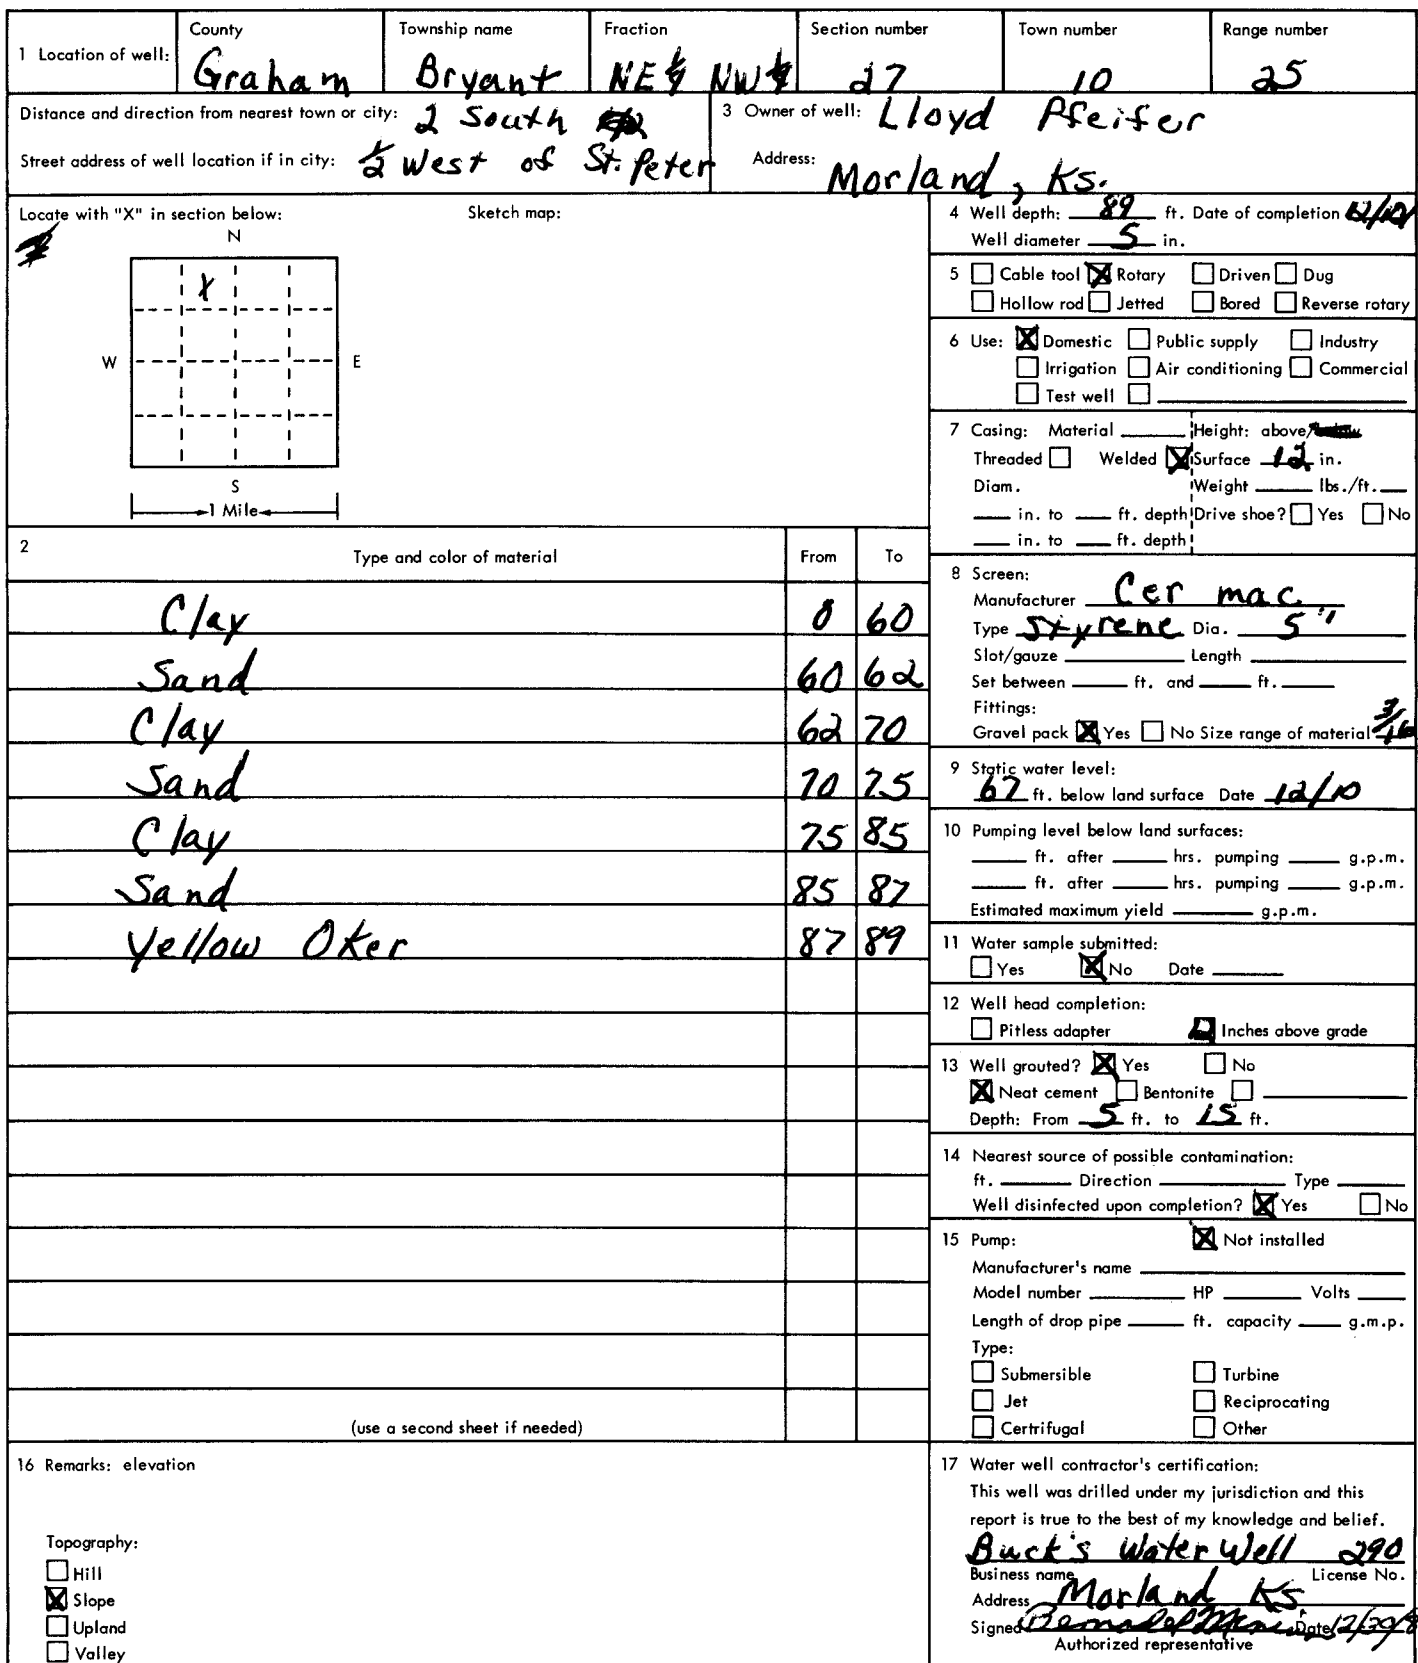 1 Location of well: County Graham Township name Bryant Fraction NE 1/4 NW 1/4 Section number 27 Town number 10 Range number 25
Distance and direction from nearest town or city: 2 South
Street address of well location if in city: 1/2 West of St. Peter
3 Owner of well: Lloyd Pfeifer
Address: Morland, Ks.
Locate with "X" in section below:
Sketch map:
N
X
W E
S
1 Mile
2 Type and color of material From To
Clay 0 60
Sand 60 62
Clay 62 70
Sand 70 75
Clay 75 85
Sand 85 87
Yellow Oker 87 89
(use a second sheet if needed)
4 Well depth: 89 ft. Date of completion 12/10/
Well diameter 5 in.
5 Cable tool X Rotary Driven Dug
Hollow rod Jetted Bored Reverse rotary
6 Use: X Domestic Public supply Industry
Irrigation Air conditioning Commercial
Test well
7 Casing: Material Height: above/
Threaded Welded X Surface 12 in.
Diam. Weight lbs./ft.
in. to ft. depth Drive shoe? Yes No
in. to ft. depth
8 Screen:
Manufacturer Cer mac
Type Styrene Dia. 5"
Slot/gauze Length
Set between ft. and ft.
Fittings:
Gravel pack X Yes No Size range of material 3/16
9 Static water level:
67 ft. below land surface Date 12/10
10 Pumping level below land surfaces:
ft. after hrs. pumping g.p.m.
ft. after hrs. pumping g.p.m.
Estimated maximum yield g.p.m.
11 Water sample submitted:
Yes X No Date
12 Well head completion:
Pitless adapter Inches above grade
13 Well grouted? X Yes No
X Neat cement Bentonite
Depth: From 5 ft. to 15 ft.
14 Nearest source of possible contamination:
ft. Direction Type
Well disinfected upon completion? X Yes No
15 Pump: X Not installed
Manufacturer's name
Model number HP Volts
Length of drop pipe ft. capacity g.m.p.
Type:
Submersible Turbine
Jet Reciprocating
Certrifugal Other
16 Remarks: elevation
Topography:
Hill
X Slope
Upland
Valley
17 Water well contractor's certification:
This well was drilled under my jurisdiction and this
report is true to the best of my knowledge and belief.
Buck's Water Well 290
Business name License No.
Address Morland Ks.
Signed Date 12/30/8
Authorized representative